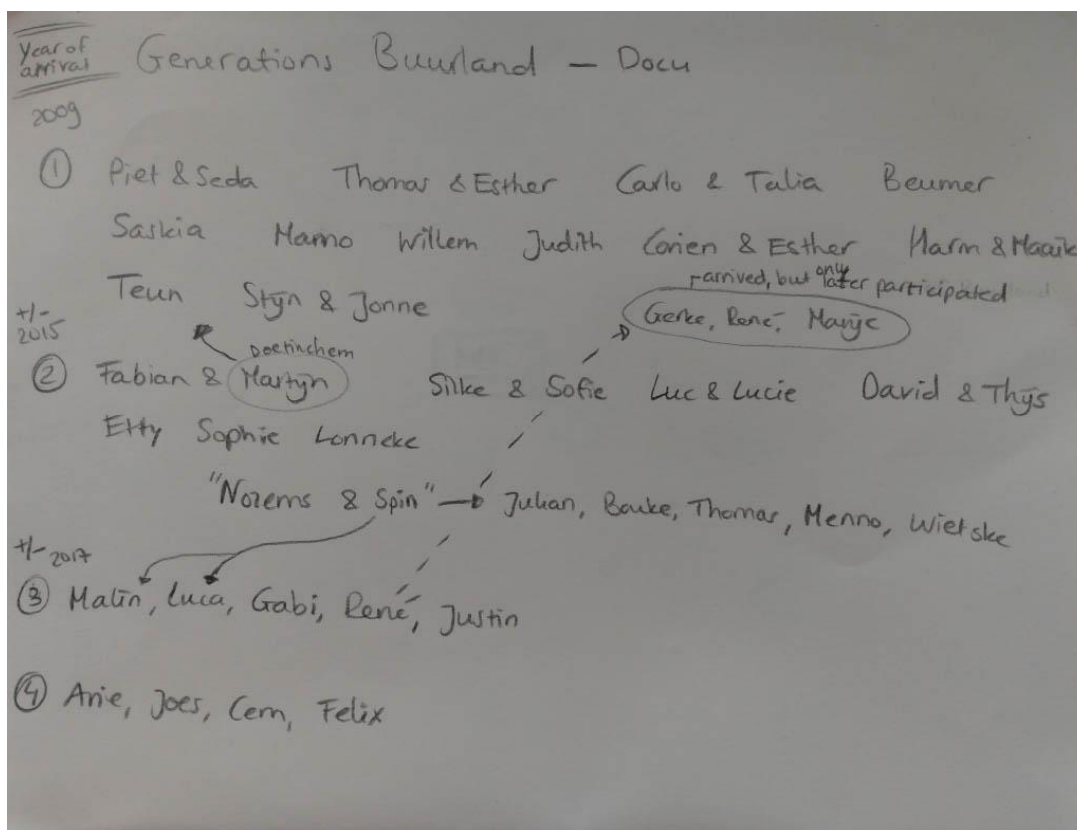 Year of
arrival
Generations Buurland – Docu
2009
① Piet & Seda Thomas & Esther Carlo & Talia Beumer
Saskia Manno Willem Judith Corien & Esther Harm & Maaik
arrived, but only later participated
Teun Stijn & Jonne
Gerke, René, Marije
+/-
2015
Doetinchem
② Fabian & Martijn Silke & Sofie Luc & Lucie David & Thijs
Etty Sophie Lonneke
"Nozems & Spin" → Julian, Bauke, Thomas, Menno, Wietske
+/- 2017
③ Malin, Luca, Gabi, René, Justin
④ Arie, Joes, Cem, Felix